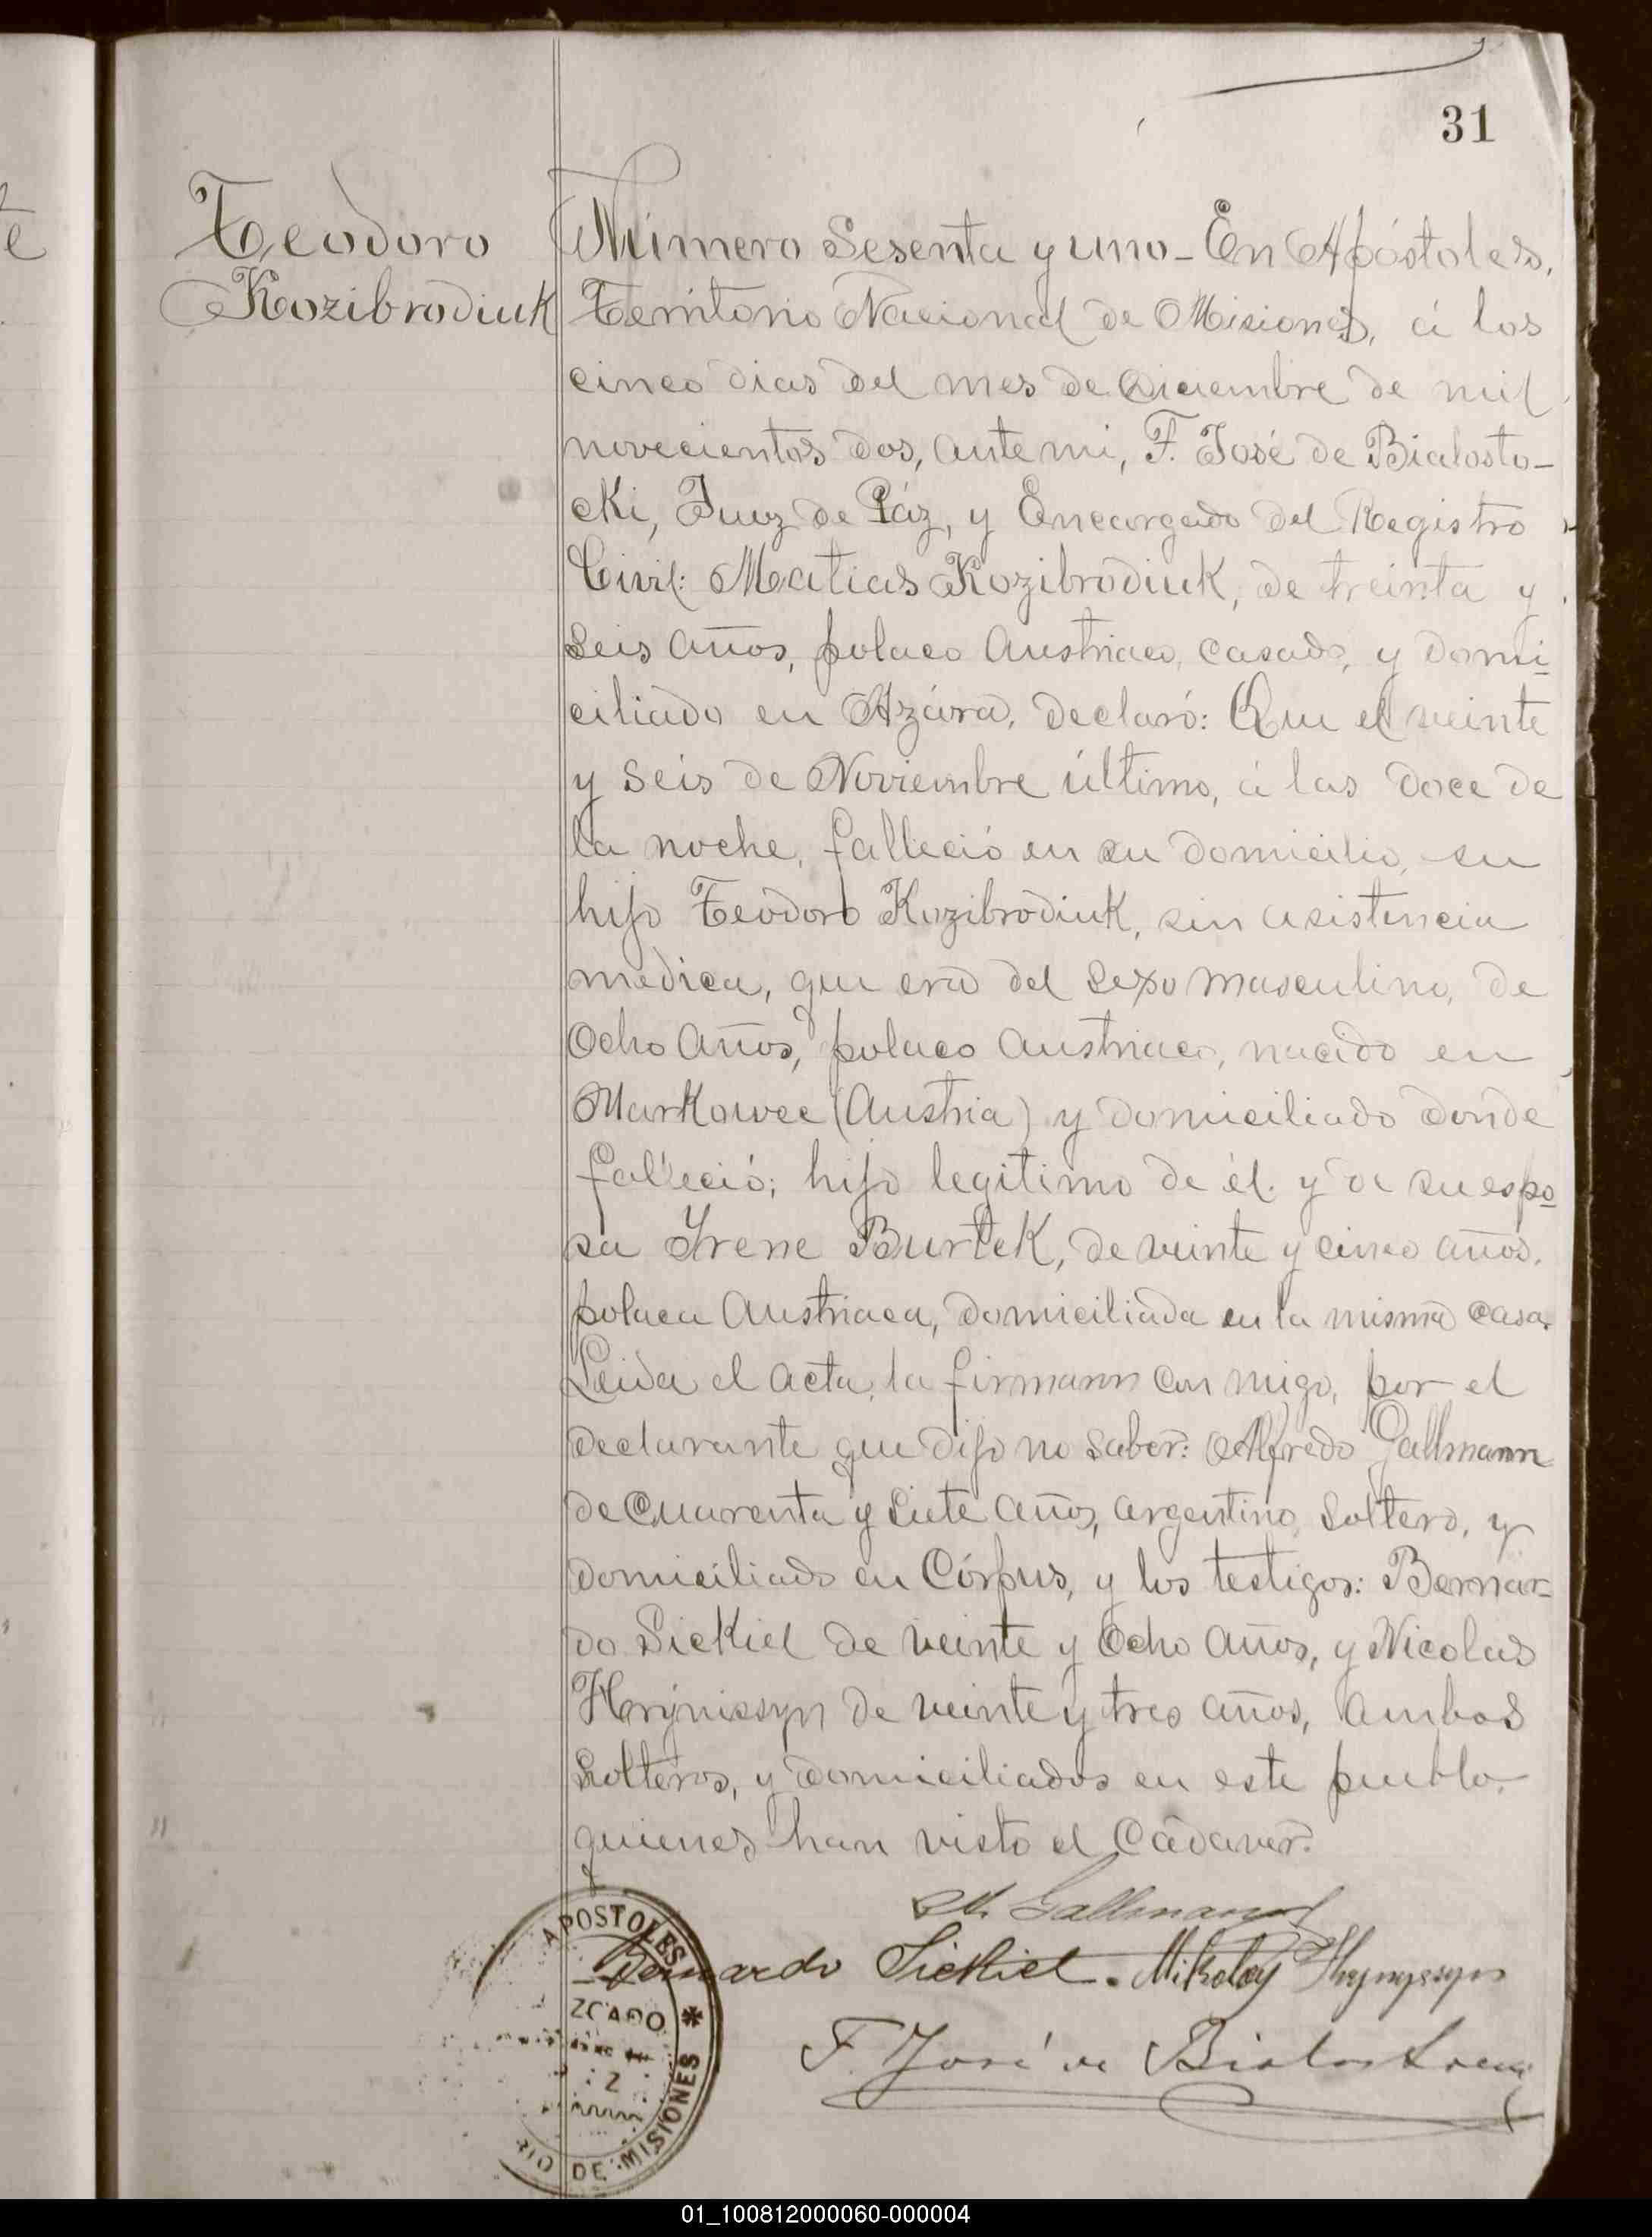 31
Teodoro
Kozibrodiuk
Número Sesenta y uno - En Apóstoles,
Territorio Nacional de Misiones, á los
cinco dias del mes de Diciembre de mil
novecientos dos, ante mi, F. José de Bialosto-
cki, Juez de Páz, y Encargado del Registro
Civil: Matias Kozibrodiuk, de treinta y
seis años, polaco austriaco, casado, y domi-
ciliado en Azára, declaró: Que el veinte
y seis de Noviembre último, á las doce de
la noche, falleció en su domicilio, su
hijo Teodoro Kozibrodiuk, sin asistencia
medica, que era del sexo masculino, de
ocho años, polaco austriaco, nacido en
Markowce (Austria) y domiciliado donde
falleció; hijo legitimo de él y de su espo
sa Irene Burtek, de veinte y cinco años,
polaca austriaca, domiciliada en la misma casa.
Leida el acta, la firmann con migo, por el
declarante que dijo no saber: Alfredo Gallmann
de cuarenta y siete años, argentino, soltero, y
domiciliado en Córpus, y los testigos: Bernar-
do Sickiel de veinte y ocho años, y Nicolas
Hrynissyn de veinte y tres años, ambos
solteros, y domiciliados en este pueblo
quienes han visto el cádaver.
Gallmann
Bernardo Sickiel. Mikolay
F. José de
APOSTOLES
ZGADO *
2
RIO DE MISIONES
01_100812000060-000004